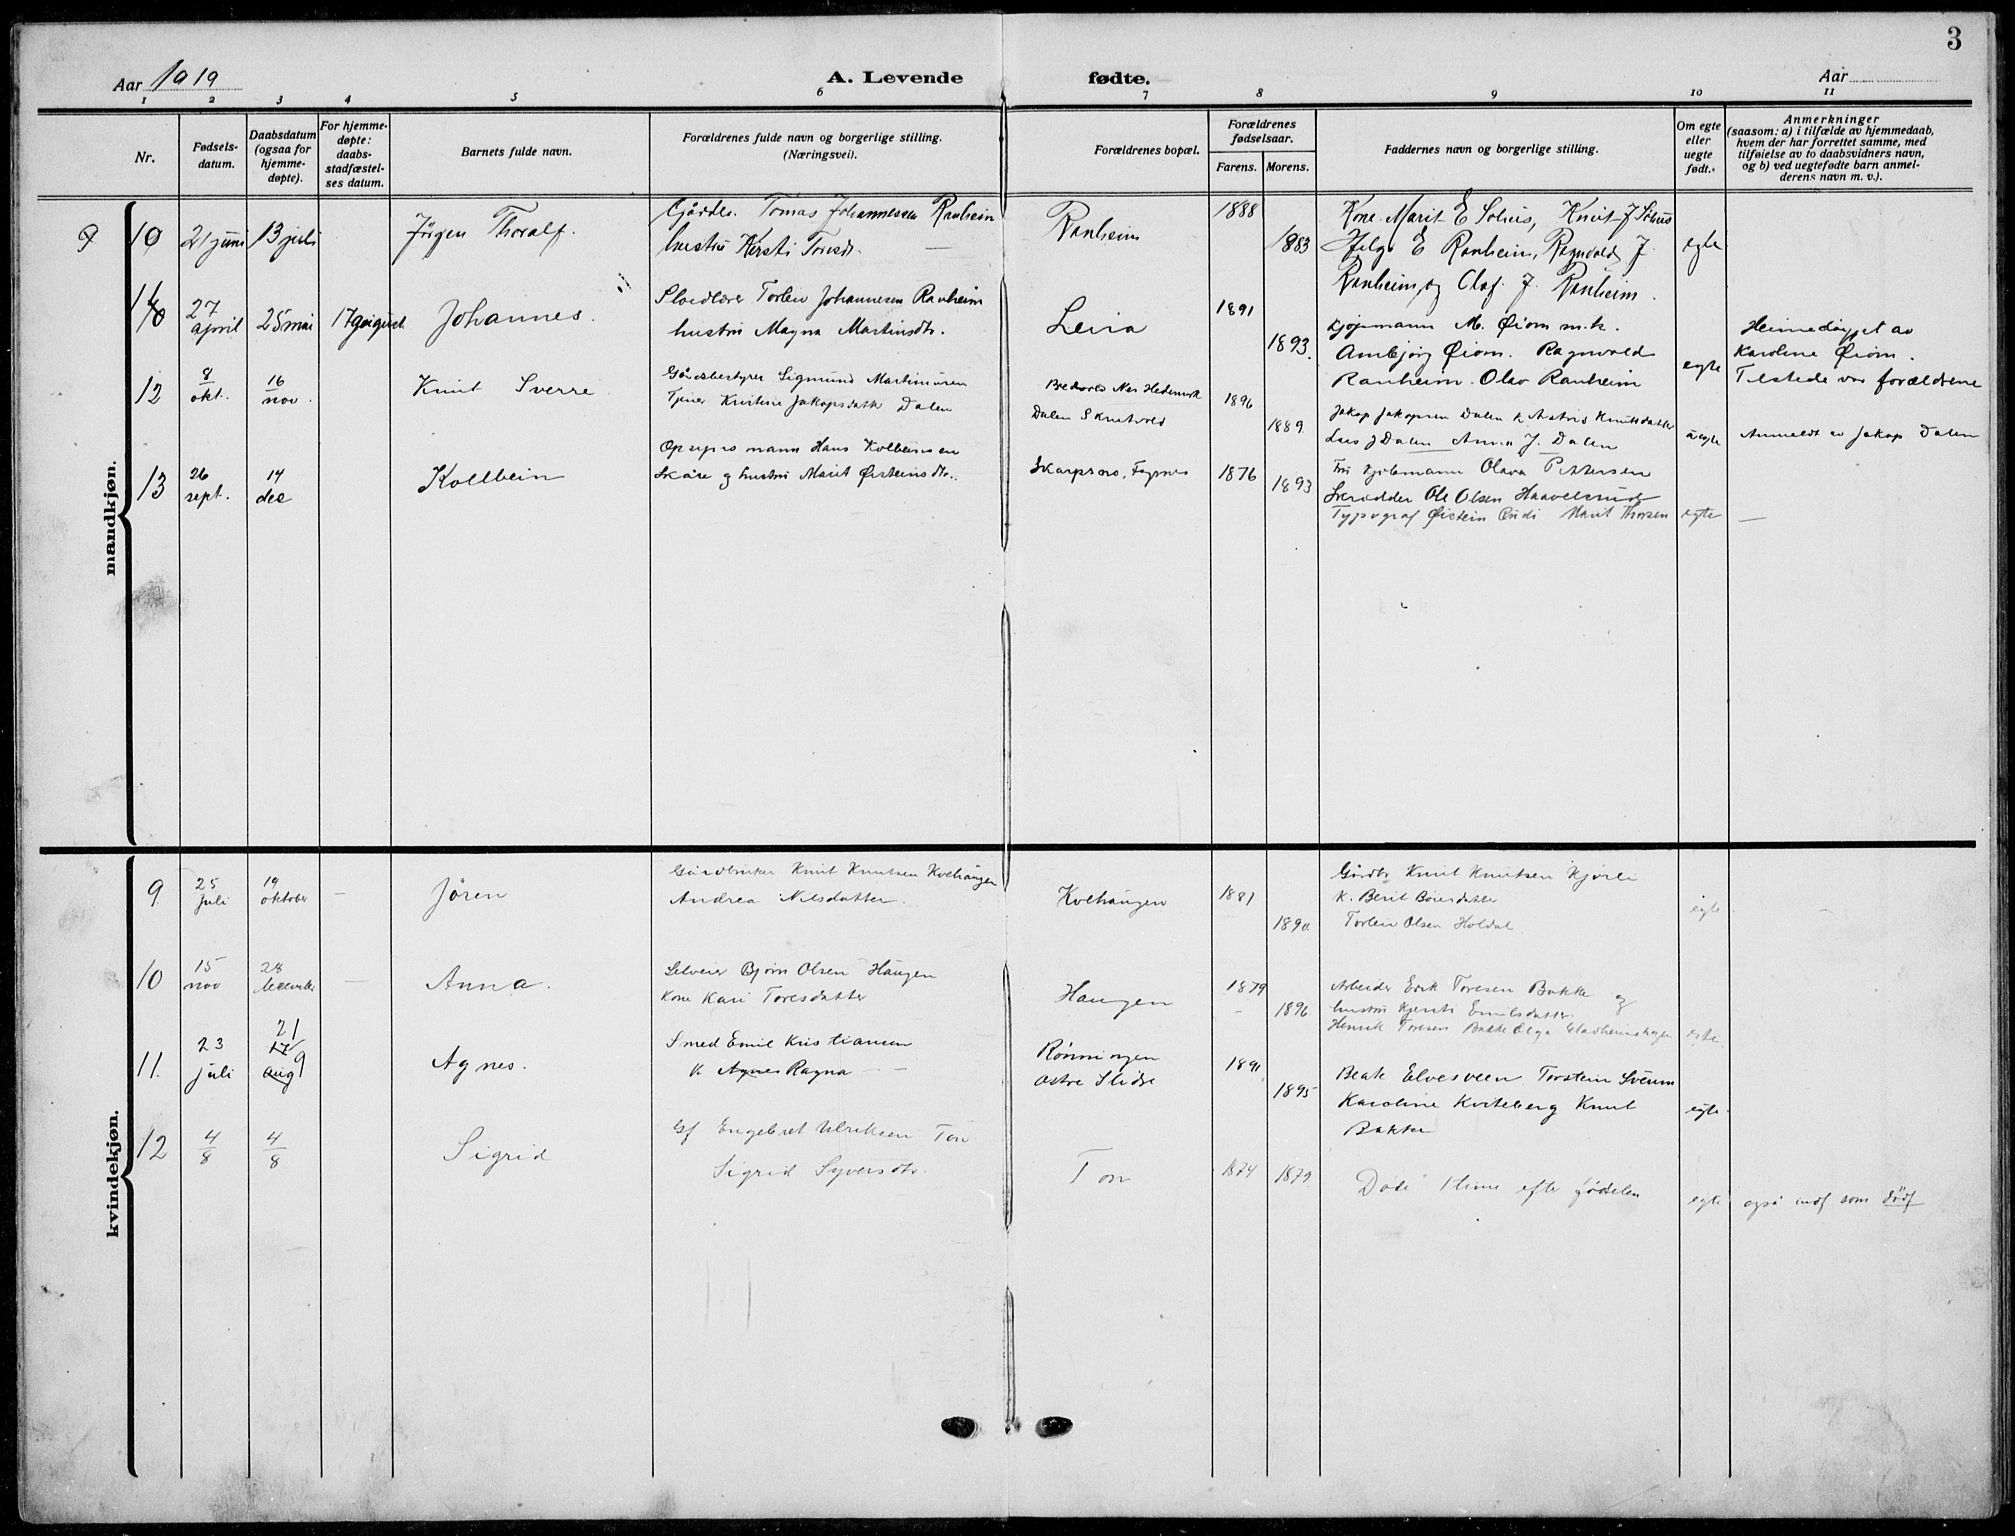 3
Aar 1919 A. Levende fødte. Aar
1 2 3 4 5 6 7 8 9 10 11
Nr.
Fødsels-
datum.
Daabsdatum
(ogsaa for
hjemme-
døpte).
For hjemme-
døpte:
daabs-
stadfæstel-
ses datum.
Barnets fulde navn.
Forældrenes fulde navn og borgerlige stilling.
(Næringsvei).
Forældrenes bopæl.
Forældrenes
fødselsaar.
Farens. Morens.
Faddernes navn og borgerlige stilling.
Om egte
eller
uegte
født.
Anmerkninger
(saasom: a) i tilfælde av hjemmedaab,
hvem der har forrettet samme, med
tilføielse av to daabsvidners navn,
og b) ved uegtefødte barn anmel-
derens navn m. v.).
mandkjøn.
10 21 juni 13 juli Jörgen Thoralf.
Gårdbr. Tomas Johannessen Ranheim
hustru Kersti Toresdr.
Ranheim 1888 1883
Kone Marit E Solius, Knut J Solius
Helge E Ranheim, Ragnvald J.
Ranheim og Olaf J. Ranheim.
egte
27 april 25 mai 17 august Johannes.
Sloidlærer Torlev Johannesen Ranheim
hustru Magna Martinsdtr.
Leira 1891 1893.
Kjøpmann M. Øiom m.k.
Ambjørg Øiom. Ragnvald
Ranheim. Olav Ranheim
egte
Heimedøypt av
Karoline Øiom.
Tilstede var forældrene
12 8 okt. 16 nov. Knut Sverre
Gårdsbestyrer Sigmund Martinsen
Tjener Kristine Jakopsdatter Dalen
Nes Hedemark
Dalen Skrutvold
1896 1889.
Jakop Jakopsen Dalen k. Astris Knutsdatter
Lars J Dalen Anna J. Dalen
uegte Anmeldt av Jakop Dalen
13 26 sept. 14 dec Kollbein
Opsynsmann Hans Kolbeinsen
Skåre og hustru Marit Østeinsdtr.
Skarpsno, Fagnes 1876 1893
Fru Kjøbmann Olava Pettersen
Skrædder Ole Olsen Haavelsrud
Typograf Øistein Øudi Marit Thorsen egte —
kvindekjøn.
9 25 juli 19 oktober — Jören
Gårdbruker Knut Knutsen Kvehaugen
Andrea Nilsdatter.
Kvehaugen 1881 1890.
Gårdbr Knut Knutsen Kjørli
K. Berit Boiesdatter
Torlein Olsen Holdal.
egte —
10 15 nov 28 December — Anna.
Selveier Bjørn Olsen Haugen
Kone Kari Toresdatter
Haugen 1879 1896
Arbeider Erik Toresen Bakke og
hustru Kjersti Emilsdatter.
Henrik Toresen Bakke Olga
egte.
11. 23 juli 21 17 9 aug Agnes.
Smed Emil Kristiansen
K Agnes Ragna
Rønningen
Østre Slidre
1891 1895
Beate Elvesveen Torstein Sveum
Karoline Kviteberg Knut
Bakke
egte.
12 4/8 4/8 Sigrid
Gf Engebret Ulriksen Ton
Sigrid Syversdtr.
Ton 1874 1879.
Døde 1 time efter fødselen
egte også indf som dödf